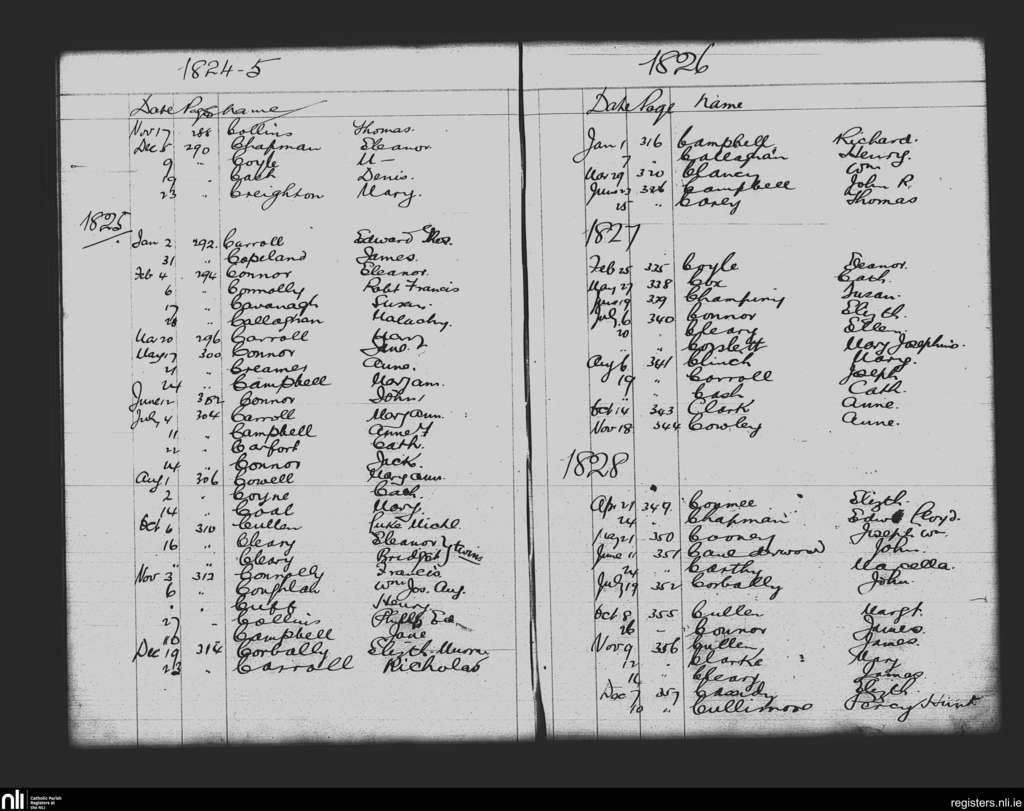 1824-5
Date Page Name
Nov 17 288 Collins Thomas.
Dec 5 290 Chapman Eleanor
9 " Coyle M—
19 " Cash Denis.
23 " Creighton Mary.
1825
Jan 2 292. Carroll Edward Thos.
31 " Copeland James.
Feb 4 294 Connor Eleanor.
6 " Connolly Robt Francis
17 " Cavanagh Susan.
28 " Callaghan Malachy.
Mar 20 296 Carroll Mary
May 17 300 Connor Jane.
21 " Creames Anne.
24 " Campbell Maryann.
June 12 302 Connor John
July 4 304 Carroll Mary Ann.
11 " Campbell Anne
22 " Carfort Cath.
24 " Connor Jick.
Aug 1 306 Cowell Mary Ann.
2 " Coyne Cath.
14 " Coal Mary.
Oct 6 310 Cullen Luke Michl.
16 " Cleary Eleanor } twins
" " Cleary Bridget
Nov 3 312 Connolly Francis
6 " Coughlan Wm Jos. Aug.
" " Cuff Henry
27 " Collins Phyllis
" Campbell Jane
Dec 19 314 Corbally Elizth
23 " Carroll Nicholas
1826
Date Page Name
Jan 1 316 Campbell Richard.
7 " Callaghan Henry.
Mar 29 320 Clancy Wm.
June 23 326 Campbell John R.
25 " Carey Thomas
1827
Feb 25 325 Coyle Eleanor.
May 27 338 Cox Cath.
June 19 339 Champiny Susan.
July 6 340 Connor Elizth.
20 " Cleary Ellen
" " Corslett Mary Josephine.
Aug 6 341 Clinch Mary.
19 " Carroll Joseph
" " Cash Cath.
Oct 14 343 Clark Anne.
Nov 18 344 Cowley Anne.
1828
Apr 21 349. Coymee Elizth.
24 " Chapman Edwd Lloyd.
May 21 350 Cooney Joseph Wm.
June 11 351 John.
24 " Carthy Marcella.
July 19 352 Corbally John
Oct 8 355 Cullen Margt.
26 " Connor James.
Nov 9 356 Cullen James.
12 " Clarke Mary
16 " Cleary James.
Dec 7 357 Cassidy Elizth.
10 " Cullimore Percy Hunt
nli Catholic Parish
Registers at
the NLI
registers.nli.ie